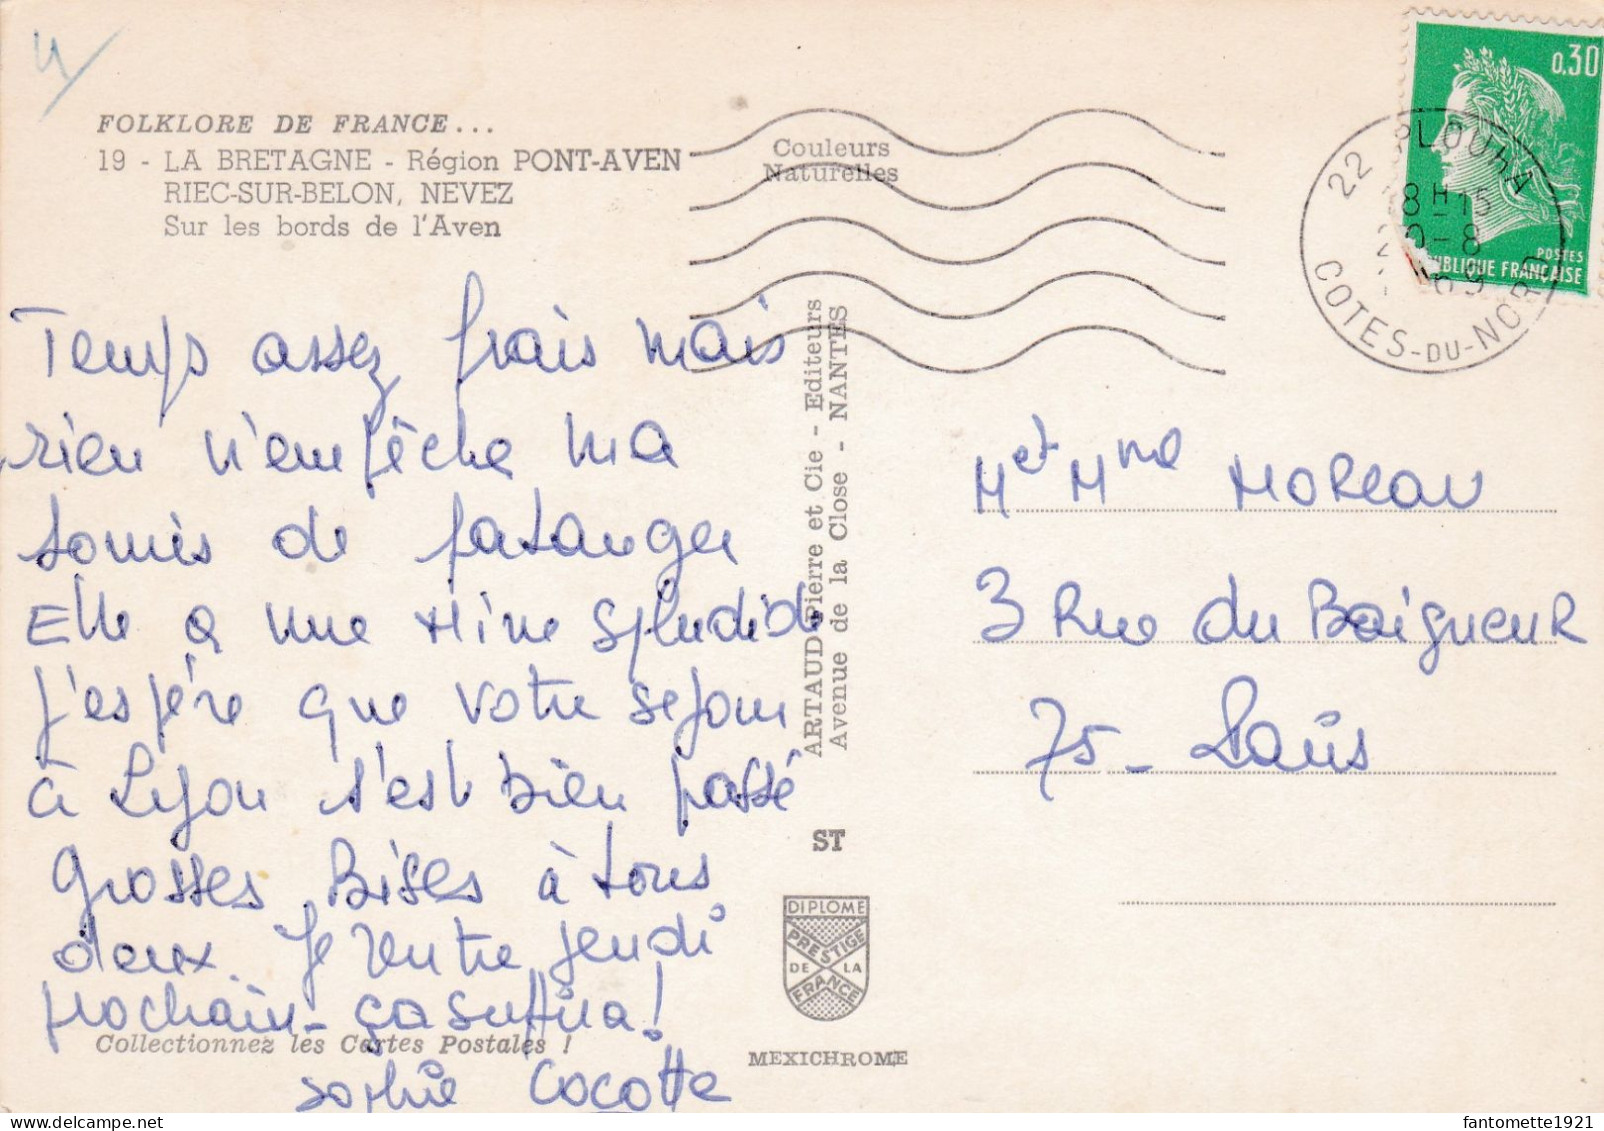 4
FOLKLORE DE FRANCE...
19 - LA BRETAGNE - Région PONT-AVEN
RIEC-SUR-BELON, NEVEZ
Sur les bords de l'Aven
Couleurs
Naturelles
0,30
POSTES
RÉPUBLIQUE FRANÇAISE
22 PLOUHA
8H15
20-8
1969
COTES-DU-NORD
Temps assez frais mais
rien n'empêche ma
souris de patauger
Elle a une mine splendide
J'espère que votre séjour
à Lyon s'est bien passé
Grosses Bises à tous
deux. Je rentre jeudi
prochain - ça suffira!
Sophie Cocotte
Collectionnez les Cartes Postales !
ARTAUD Pierre et Cie - Editeurs
Avenue de la Close - NANTES
ST
DIPLOME
PRESTIGE
DE LA
FRANCE
MEXICHROME
M et Mme MOREAU
3 Rue du Boigneur
75 - Paris
fantomette1921